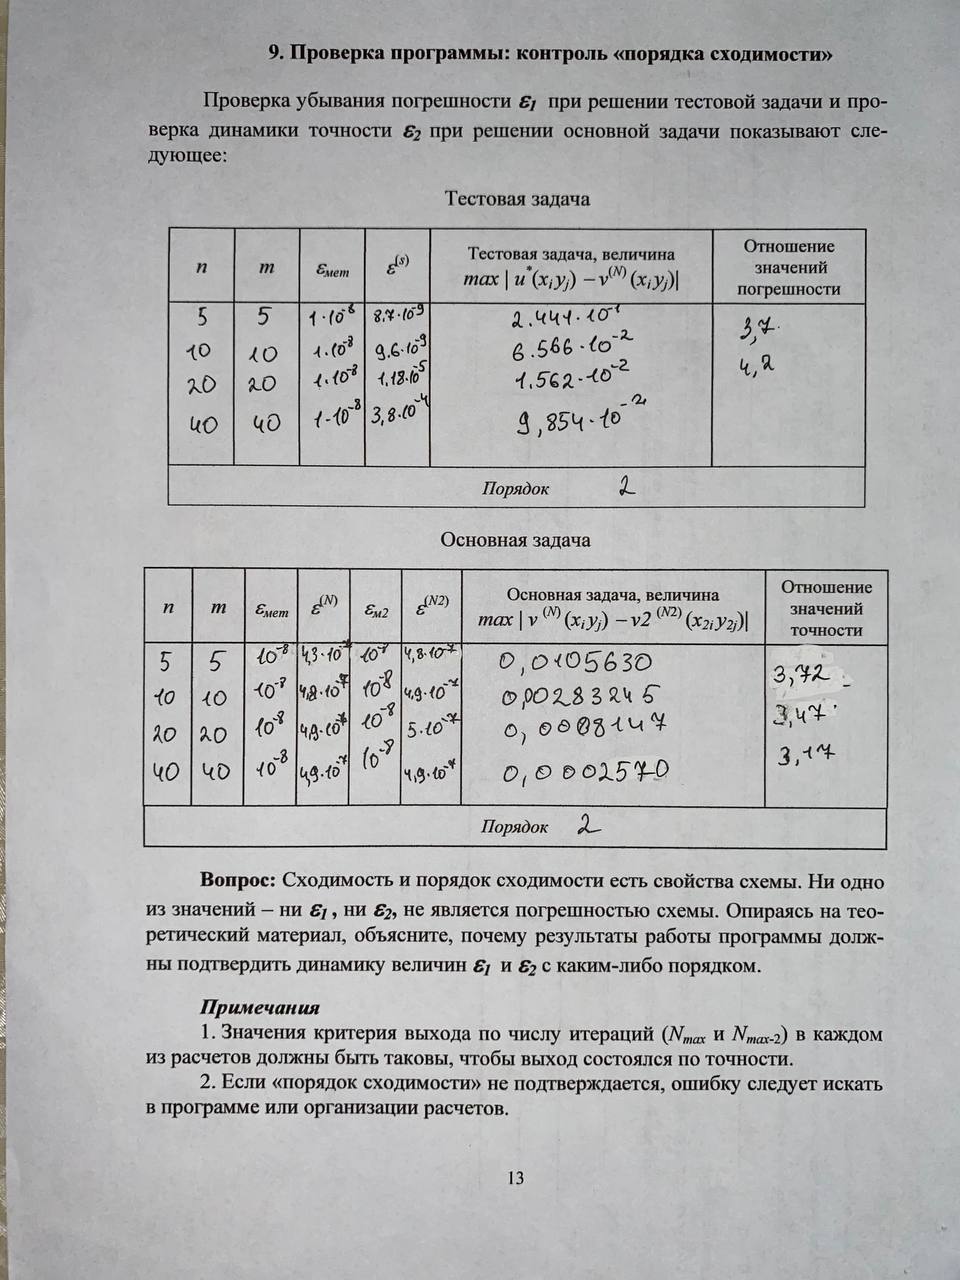 9. Проверка программы: контроль «порядка сходимости»
Проверка убывания погрешности ε1 при решении тестовой задачи и про-
верка динамики точности ε2 при решении основной задачи показывают сле-
дующее:
Тестовая задача
n m εмет ε(s) Тестовая задача, величина max | u*(xiyj) – v(N) (xiyj)| Отношение значений погрешности
5 5 1·10-8 8.7·10-9 2.441·10-1 3,7
10 10 1·10-8 9.6·10-9 6.566·10-2 4,2
20 20 1·10-8 1,18·10-5 1.562·10-2
40 40 1·10-8 3,8·10-4 9,854·10-2
Порядок 2
Основная задача
n m εмет ε(N) εм2 ε(N2) Основная задача, величина max | v (N) (xiyj) – v2 (N2) (x2iy2j)| Отношение значений точности
5 5 10-8 4,3·10 4,8·10-7 0,0105630 3,72
10 10 10-8 4,8·10-7 10-8 4,9·10-7 0,00283245 3,47
20 20 10-8 4,9·10-7 10-8 5·10-7 0,0008147 3,17
40 40 10-8 4,9·10-7 10-8 4,9·10-7 0,0002570
Порядок 2
Вопрос: Сходимость и порядок сходимости есть свойства схемы. Ни одно
из значений – ни ε1 , ни ε2, не является погрешностью схемы. Опираясь на тео-
ретический материал, объясните, почему результаты работы программы долж-
ны подтвердить динамику величин ε1 и ε2 с каким-либо порядком.
Примечания
1. Значения критерия выхода по числу итераций (Nmax и Nmax-2) в каждом
из расчетов должны быть таковы, чтобы выход состоялся по точности.
2. Если «порядок сходимости» не подтверждается, ошибку следует искать
в программе или организации расчетов.
13